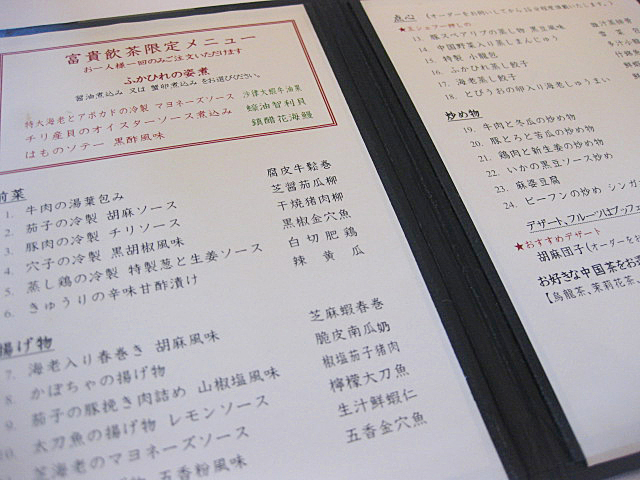 富貴飲茶限定メニュー
お一人様一回のみご注文いただけます
ふかひれの姿煮
醤油煮込み 又は 蟹卵煮込み をお選びください。
特大海老とアボカドの冷製 マヨネーズソース 沙律大蝦牛油果
チリ産貝のオイスターソース煮込み 蠔油智利貝
はものソテー 黒酢風味 鎮醋花海鰻
前菜
1. 牛肉の湯葉包み 腐皮牛鬆巻
2. 茄子の冷製 胡麻ソース 芝醤茄瓜柳
3. 豚肉の冷製 チリソース 干焼猪肉柳
4. 穴子の冷製 黒胡椒風味 黒椒金穴魚
5. 蒸し鶏の冷製 特製葱と生姜ソース 白切肥鶏
6. きゅうりの辛味甘酢漬け 辣黄瓜
揚げ物
7. 海老入り春巻き 胡麻風味 芝麻蝦春巻
8. かぼちゃの揚げ物 脆皮南瓜奶
9. 茄子の豚挽き肉詰め 山椒塩風味 椒塩茄子猪肉
10. 太刀魚の揚げ物 レモンソース 檸檬大刀魚
芝海老のマヨネーズソース 生汁鮮蝦仁
五香粉風味 五香金穴魚
点心 (オーダーをお伺いしてから15分程度頂戴いたします。)
★主シェフ一押しの
13. 豚スペアリブの蒸し物 黒豆風味
14. 中国野菜入り蒸しまんじゅう
15. 特製 小籠包
16. ふかひれ蒸し餃子
17. 海老蒸し餃子
18. とびうおの卵入り海老しゅうまい
炒め物
19. 牛肉と冬瓜の炒め物
20. 豚とろと苦瓜の炒め物
21. 鶏肉と新生姜の炒め物
22. いかの黒豆ソース炒め
23. 麻婆豆腐
24. ビーフンの炒め シンガ
デザート、フルーツはブッフェ
★おすすめデザート
胡麻団子(オーダーを
お好きな中国茶をお選
【烏龍茶、茉莉花茶、